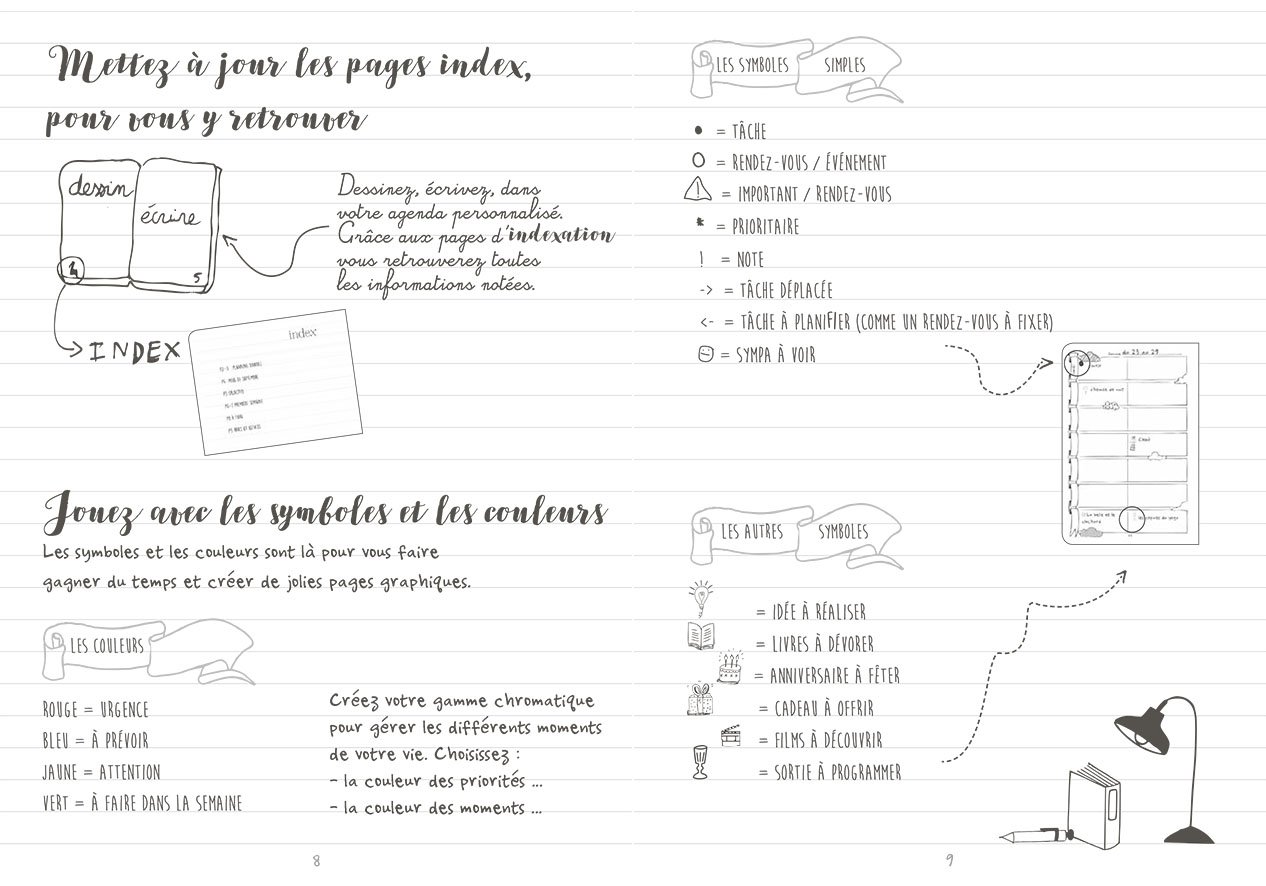 Mettez à jour les pages index,
pour vous y retrouver
dessin
écrire
4
5
Dessinez, écrivez, dans
votre agenda personnalisé.
Grâce aux pages d'indexation
vous retrouverez toutes
les informations notées.
INDEX
index
Jouez avec les symboles et les couleurs
Les symboles et les couleurs sont là pour vous faire
gagner du temps et créer de jolies pages graphiques.
LES COULEURS
ROUGE = URGENCE
BLEU = À PRÉVOIR
JAUNE = ATTENTION
VERT = À FAIRE DANS LA SEMAINE
Créez votre gamme chromatique
pour gérer les différents moments
de votre vie. Choisissez :
- la couleur des priorités ...
- la couleur des moments ...
8
LES SYMBOLES SIMPLES
• = TÂCHE
O = RENDEZ-VOUS / ÉVÉNEMENT
⚠ = IMPORTANT / RENDEZ-VOUS
* = PRIORITAIRE
! = NOTE
-> = TÂCHE DÉPLACÉE
<- = TÂCHE À PLANIFIER (COMME UN RENDEZ-VOUS À FIXER)
= SYMPA À VOIR
du 23 au 29
LES AUTRES SYMBOLES
= IDÉE À RÉALISER
= LIVRES À DÉVORER
= ANNIVERSAIRE À FÊTER
= CADEAU À OFFRIR
= FILMS À DÉCOUVRIR
= SORTIE À PROGRAMMER
9